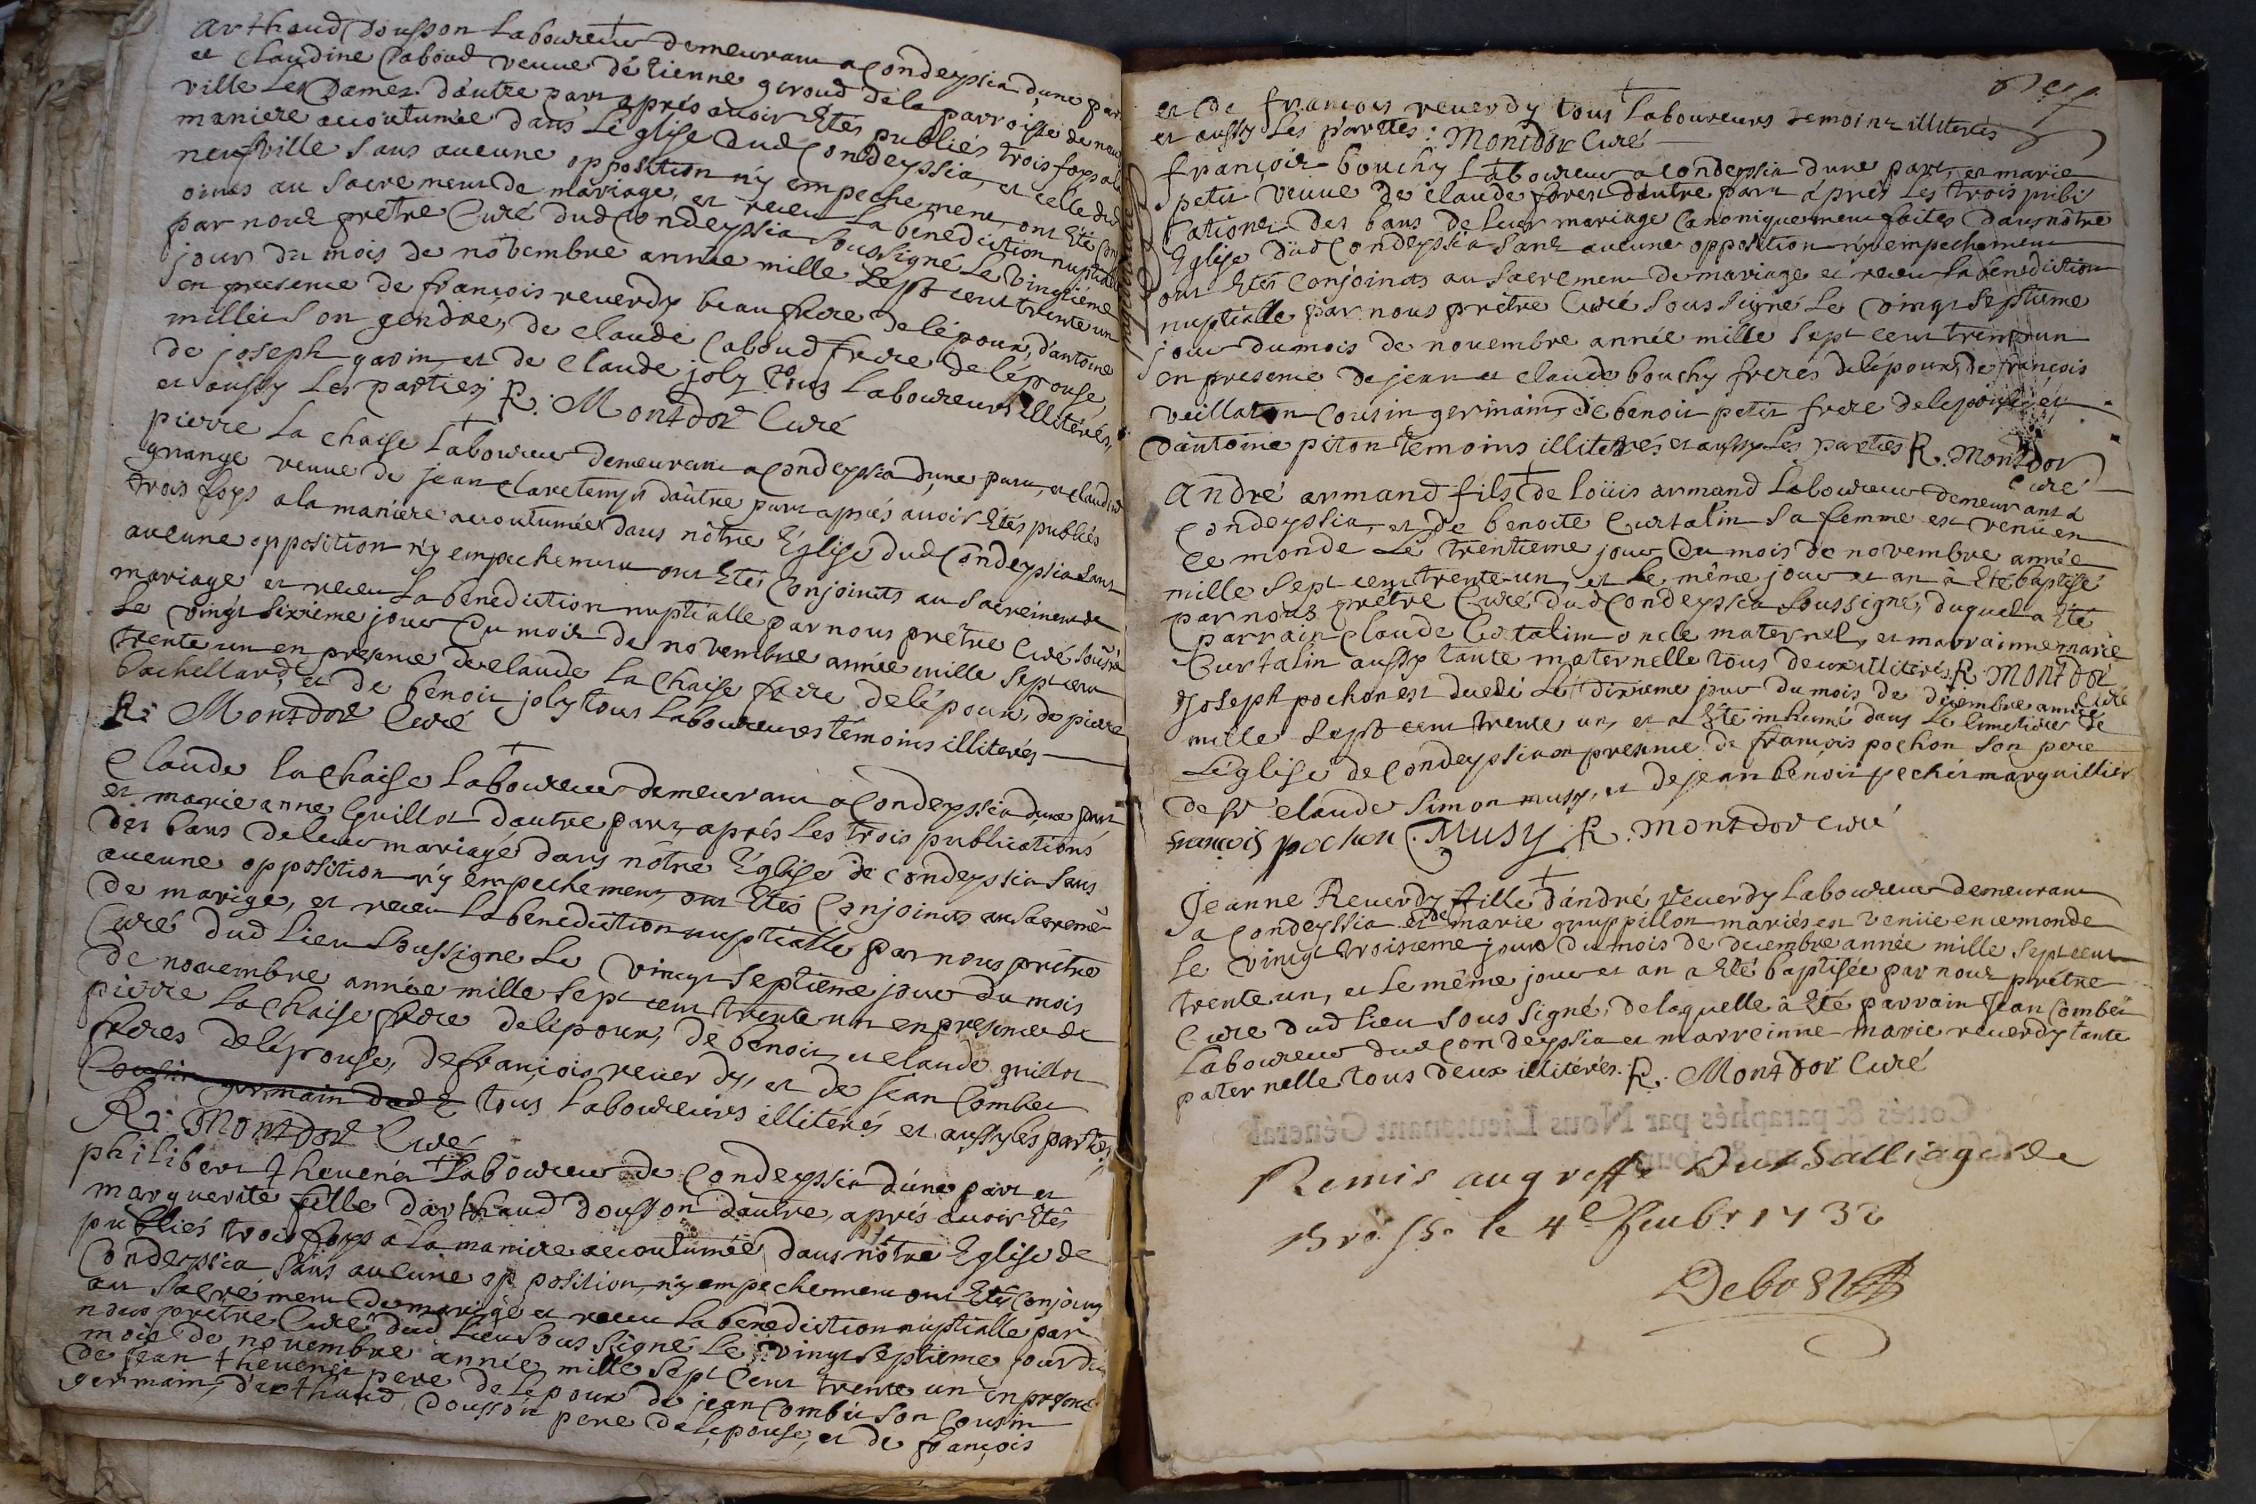 arthaud Dousson Laboureur demeurant a Condeyssia d'une part
et Claudine Caboud veuve d'étienne giroud de la parroisse de neu
ville Les Dames d'autre part aprés avoir Etés publiés trois foys a la
maniere accoutumée dans L'église dud Condeyssia, et celle dud
neufville sans aucune opposition n'y empechement, ont été con
oints au sacrement de mariage, et receu La benediction nuptialle
par nous prêtre Curé dud Condeyssia soussigné Le vingtiéme
jour du mois de novembre année mille sept cent trente un
en presence de françois reverdy beaufrere de l'époux, d'antoine
millet son gendre, de Claude Caboud frere de l'épouse,
de joseph gavin et de Claude joly tous Laboureurs illiterés,
et aussy Les parties R. Montdor Curé
pierre La chaise Laboureur demeurant a Condeyssia d'une part, et claudine
grange veuve de jean Claretemps d'autre part aprés avoir Etés publiés
trois foys a la maniére accoutumée dans nôtre Église dud Condeyssia sans
aucune opposition n'y empechement ont Etés Conjoints au sacrement de
mariage et receu La benediction nuptialle par nous prêtre Curé soussé
Le vingt sixiéme jour du mois de novembre année mille sept cent
trente un en presence de claude La Chaise frere de l'époux, de pierre
bachellard, et de benoit joly tous Laboureurs témoins illiterés
R. Montdor Curé
Claude la chaise Laboureur demeurant a Condeyssia d'une part
et marie anne Guillot d'autre part, aprés Les trois publications
des bans de leur mariage dans nôtre Église de Condeyssia sans
aucune opposition n'y empechement, ont Etés Conjoints au sacremẽ
de marige, et receu La benediction nuptialle par nous prêtre
Curé dud Lieu soussigné Le vingt septieme jour du mois
de novembre année mille sept cent trente un en presence de
pierre La chaise frere de l'époux, de benoit et claude guillot
freres de l'épouse, de françois reverdy, et de jean Combet
Cousin germain dud E tous Laboureurs illitérés et aussy les parties
R. Montdor Curé
philibert thevenet Laboureur de Condeyssia d'une part et
marguerite fille d'arthaud dousson d'autre, aprés avoir Etés
publiés trois foys a La maniere accoutumée, dans nôtre Eglise de
Condeyssia sans aucune opposition, n'y empechement ont Etés conjoints
au sacrement de mariage et receu La benediction nuptialle par
nous prêtre Curé dud Lieu sous signé Le vingt septieme jour du
mois de novembre année mille sept Cent trente un en presence
de jean thevenet pere de L'époux de jean Combet son Cousin
germain, d'arthaud dousson pere de L'épouse, et de françois
et de françois reverdy tous Laboureurs temoins illiterés
et aussy Les parties: Montdor Curé
françois bouchy Laboureur a Condeyssia d'une part, et marie
petit veuve de Claude forest d'autre part aprés Les trois publi
cations des bans de Leur mariage Canoniquement faites dans nôtre
Eglise dud Condeyssia sans aucune opposition n'y empechement
ont Etés Conjoints au sacrement de mariage et receu La benediction
nuptialle par nous prêtre Curé sous signé Le vingt septieme
jour du mois de novembre année mille sept cent trente un
en presence de jean et claude bouchy freres de l'époux, de françois
veillaton Cousin germain, de benoit petit frere de l'epouse, et
d'antoine piton temoins illiterés et aussy Les parties R. Montdor
Curé
André armand fils de Loüis armand Laboureur demeurant a
Condeyssia, et de benoite Curtalin sa femme est venu en
ce monde Le trentieme jour du mois de novembre année
mille sept cent trente un, et Le même jour et an à Eté baptisé
par nous prêtre Curé dud Condeyssia soussigné, duquel a Eté
parrain Claude Curtalin oncle maternel, et marrainne marie
Curtalin aussy tante maternelle tous deux illiterés R. Montdor
Curé
Joseph pochon est decedé Le dixieme jour du mois de décembre année
mille sept cent trente un, et a Eté inhumé dans Le Cimetiere de
L'église de Condeyssia en presence de françois pochon son pere
de sr claude simon musy, et de jean benoit pechet marguillier
françois pochon C. Musy R. Montdor curé
Jeanne Reverdy fille d'andré reverdy Laboureur demeurant
a Condeyssia et de marie gruppillon mariés est venüe en ce monde
Le vingt troisieme jour du mois de decembre année mille sept cent
trente un, et Le même jour et an a Eté baptisée par nous prêtre
Curé dud Lieu sous signé, de laquelle â Eté parrain Jean Combet
Laboureur dud Condeyssia et marreinne marie reverdy tante
paternelle tous deux illitérés. R. Montdor Curé
Remis au greffe Du Balliage de
Bresse le 4e 1732
Debost